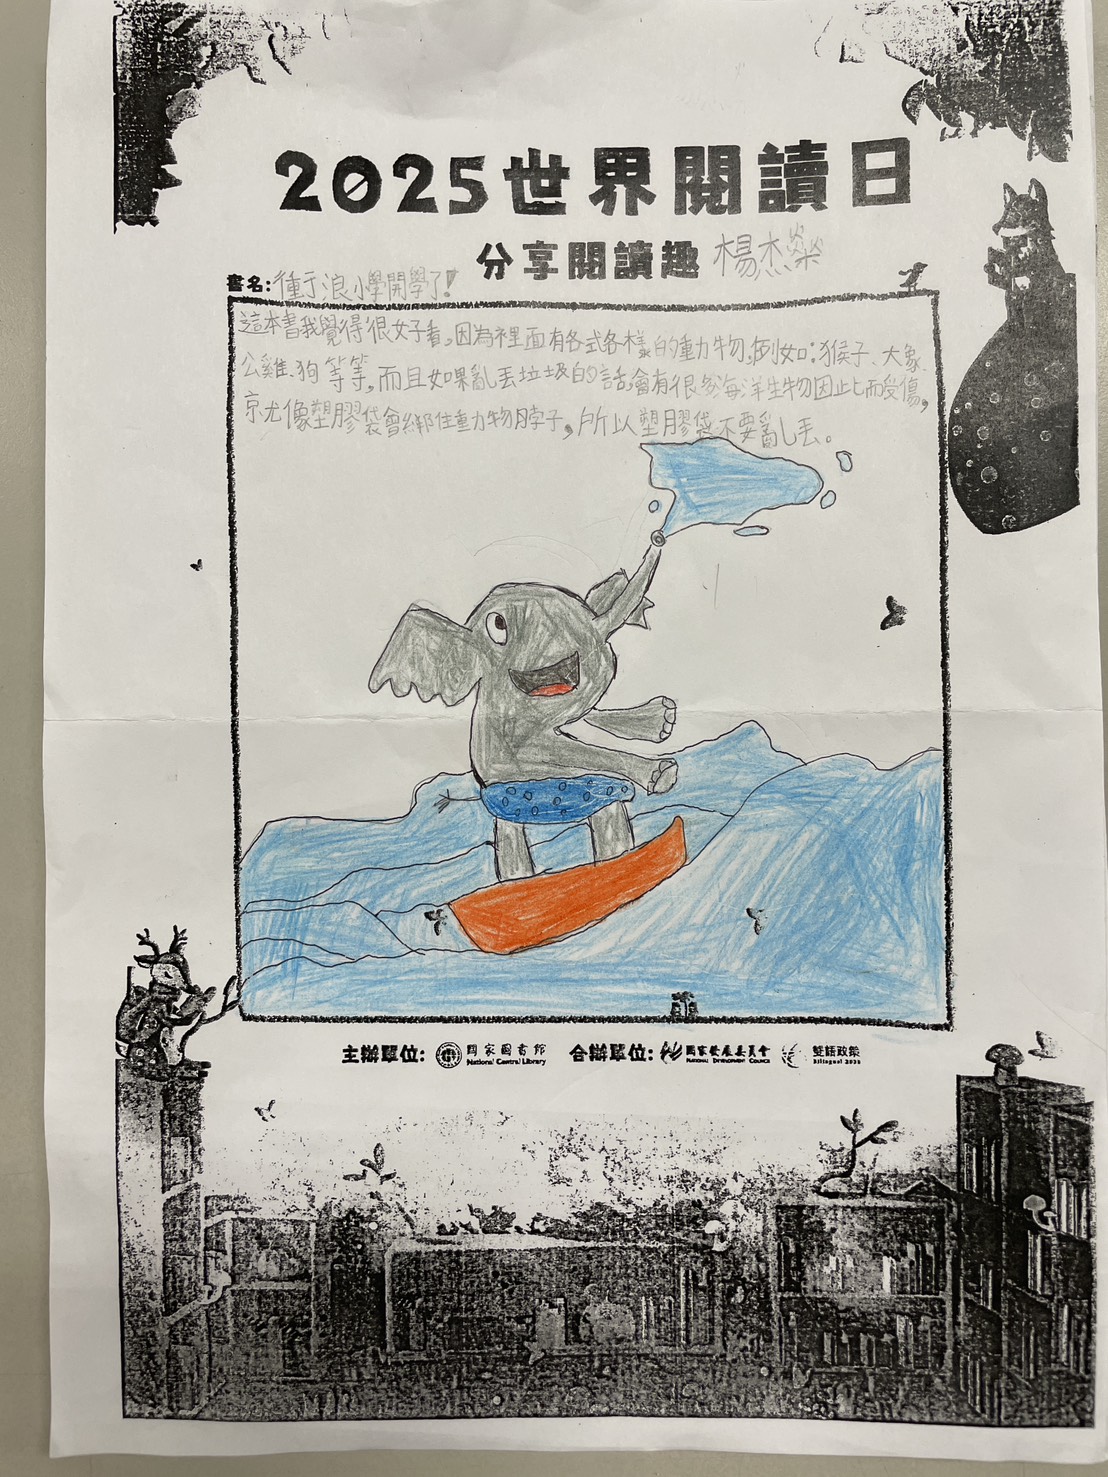 2025世界閱讀日
分享閱讀趣 楊杰燊
書名:衝浪小學開學了!
這本書我覺得很好看,因為裡面有各式各樣的動物,例如:猴子、大象、
公雞、狗等等,而且如果亂丟垃圾的話,會有很多海洋生物因此而受傷,
就像塑膠袋會綁住動物脖子,所以塑膠袋不要亂丟。
主辦單位: 國家圖書館 合辦單位: 國家發展委員會 雙語政策
National Central Library NATIONAL DEVELOPMENT COUNCIL bilingual 2030